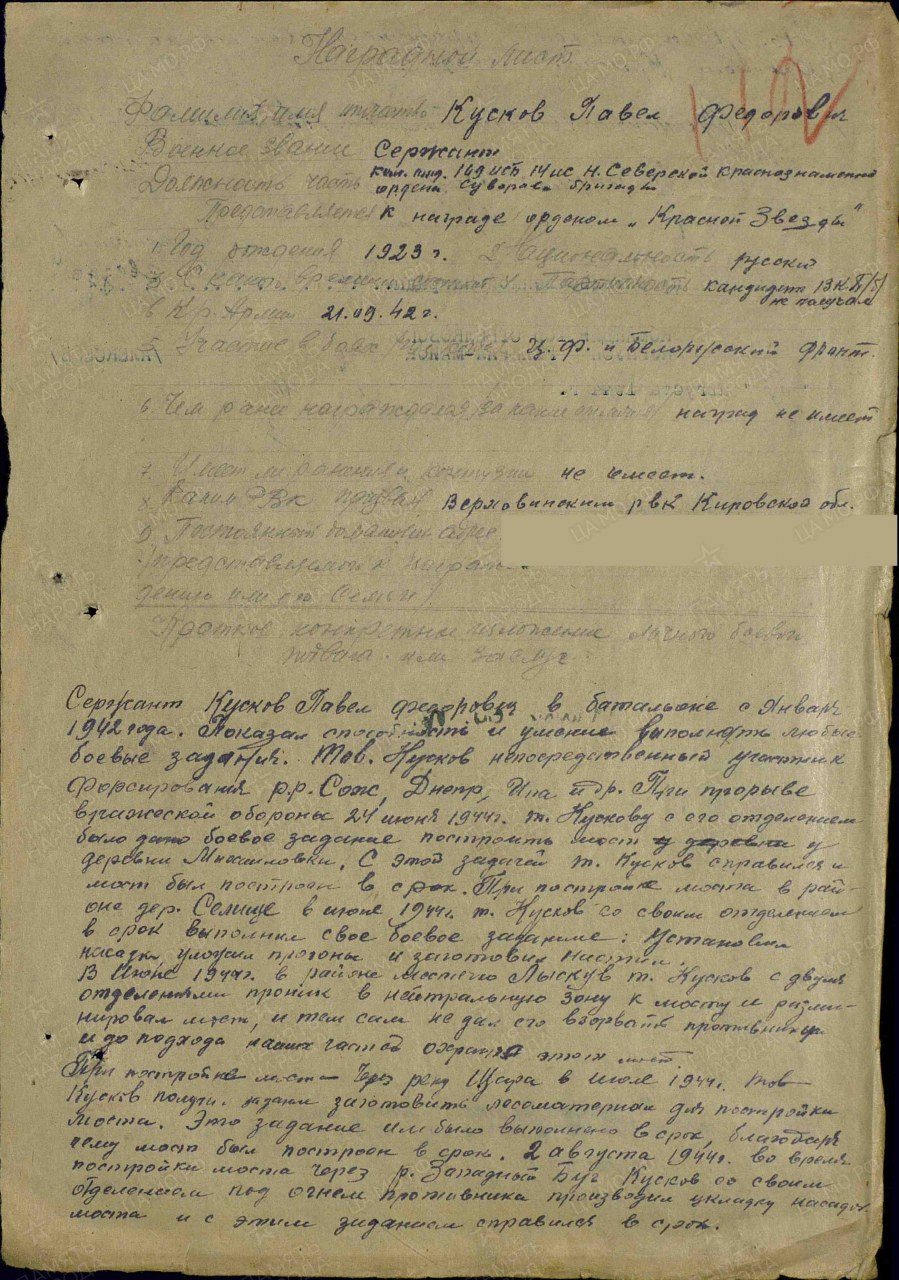 Наградной лист
Фамилия, имя отчество Кусков Павел Федорович
Военное звание Сержант
Должность часть ком. отд. 169 ИСБ 14 ИС Н. Северской краснознаменной
ордена Суворова бригады
Представляется к награде орденом „Красной Звезды"
1. Год рождения 1923 г. 2 Национальность русский
С какого времени Партийность кандидат ВКП(б)
не получал
в Кр. Армии 21.09.42 г.
Участие в боях Ц.Ф. и Белорусский фронт.
6. Чем ранее награжден наград не имеет
7. Имеет ли ранения и контузии не имеет.
8 Каким РВК призван Верховинским рвк Кировской обл.
9 Постоянный домашний адрес
представляемого к награж-
дению или его Семьи
Краткое конкретное изложение личного боевого
подвига или заслуг.
Сержант Кусков Павел Федорович в батальоне с Января
1942 года. Показал способность и умение выполнять любые
боевые задания. Тов. Кусков непосредственный участник
Форсирования р.р. Сож, Днепр, Ипа и др. При прорыве
вражеской обороны 24 июня 1944 г. т. Кускову с его отделением
было дано боевое задание построить мост у
деревни Михаиловки. С этой задачей т. Кусков справился и
мост был построен в срок. При постройке моста в рай-
оне дер. Селище в июне 1944 г. т. Кусков со своим отделением
в срок выполнил свое боевое задание: Установил
насадки, уложил прогоны и заготовил настил.
В Июле 1944 г. в районе Лысков т. Кусков с двумя
отделениями проник в нейтральную зону к мосту и разми-
нировал мост, и тем сам не дал его взорвать противнику
и до подхода наших частей охранял этот мост.
При постройке моста через реку Щара в июле 1944 г. тов
Кусков получил задание заготовить лесоматериал для постройки
моста. Это задание им было выполнено в срок, благодаря
чему мост был построен в срок. 2 августа 1944 г. во время
постройки моста через р. Западный Буг Кусков со своим
отделением под огнем противника производил укладку насадок
моста и с этим заданием справился в срок.